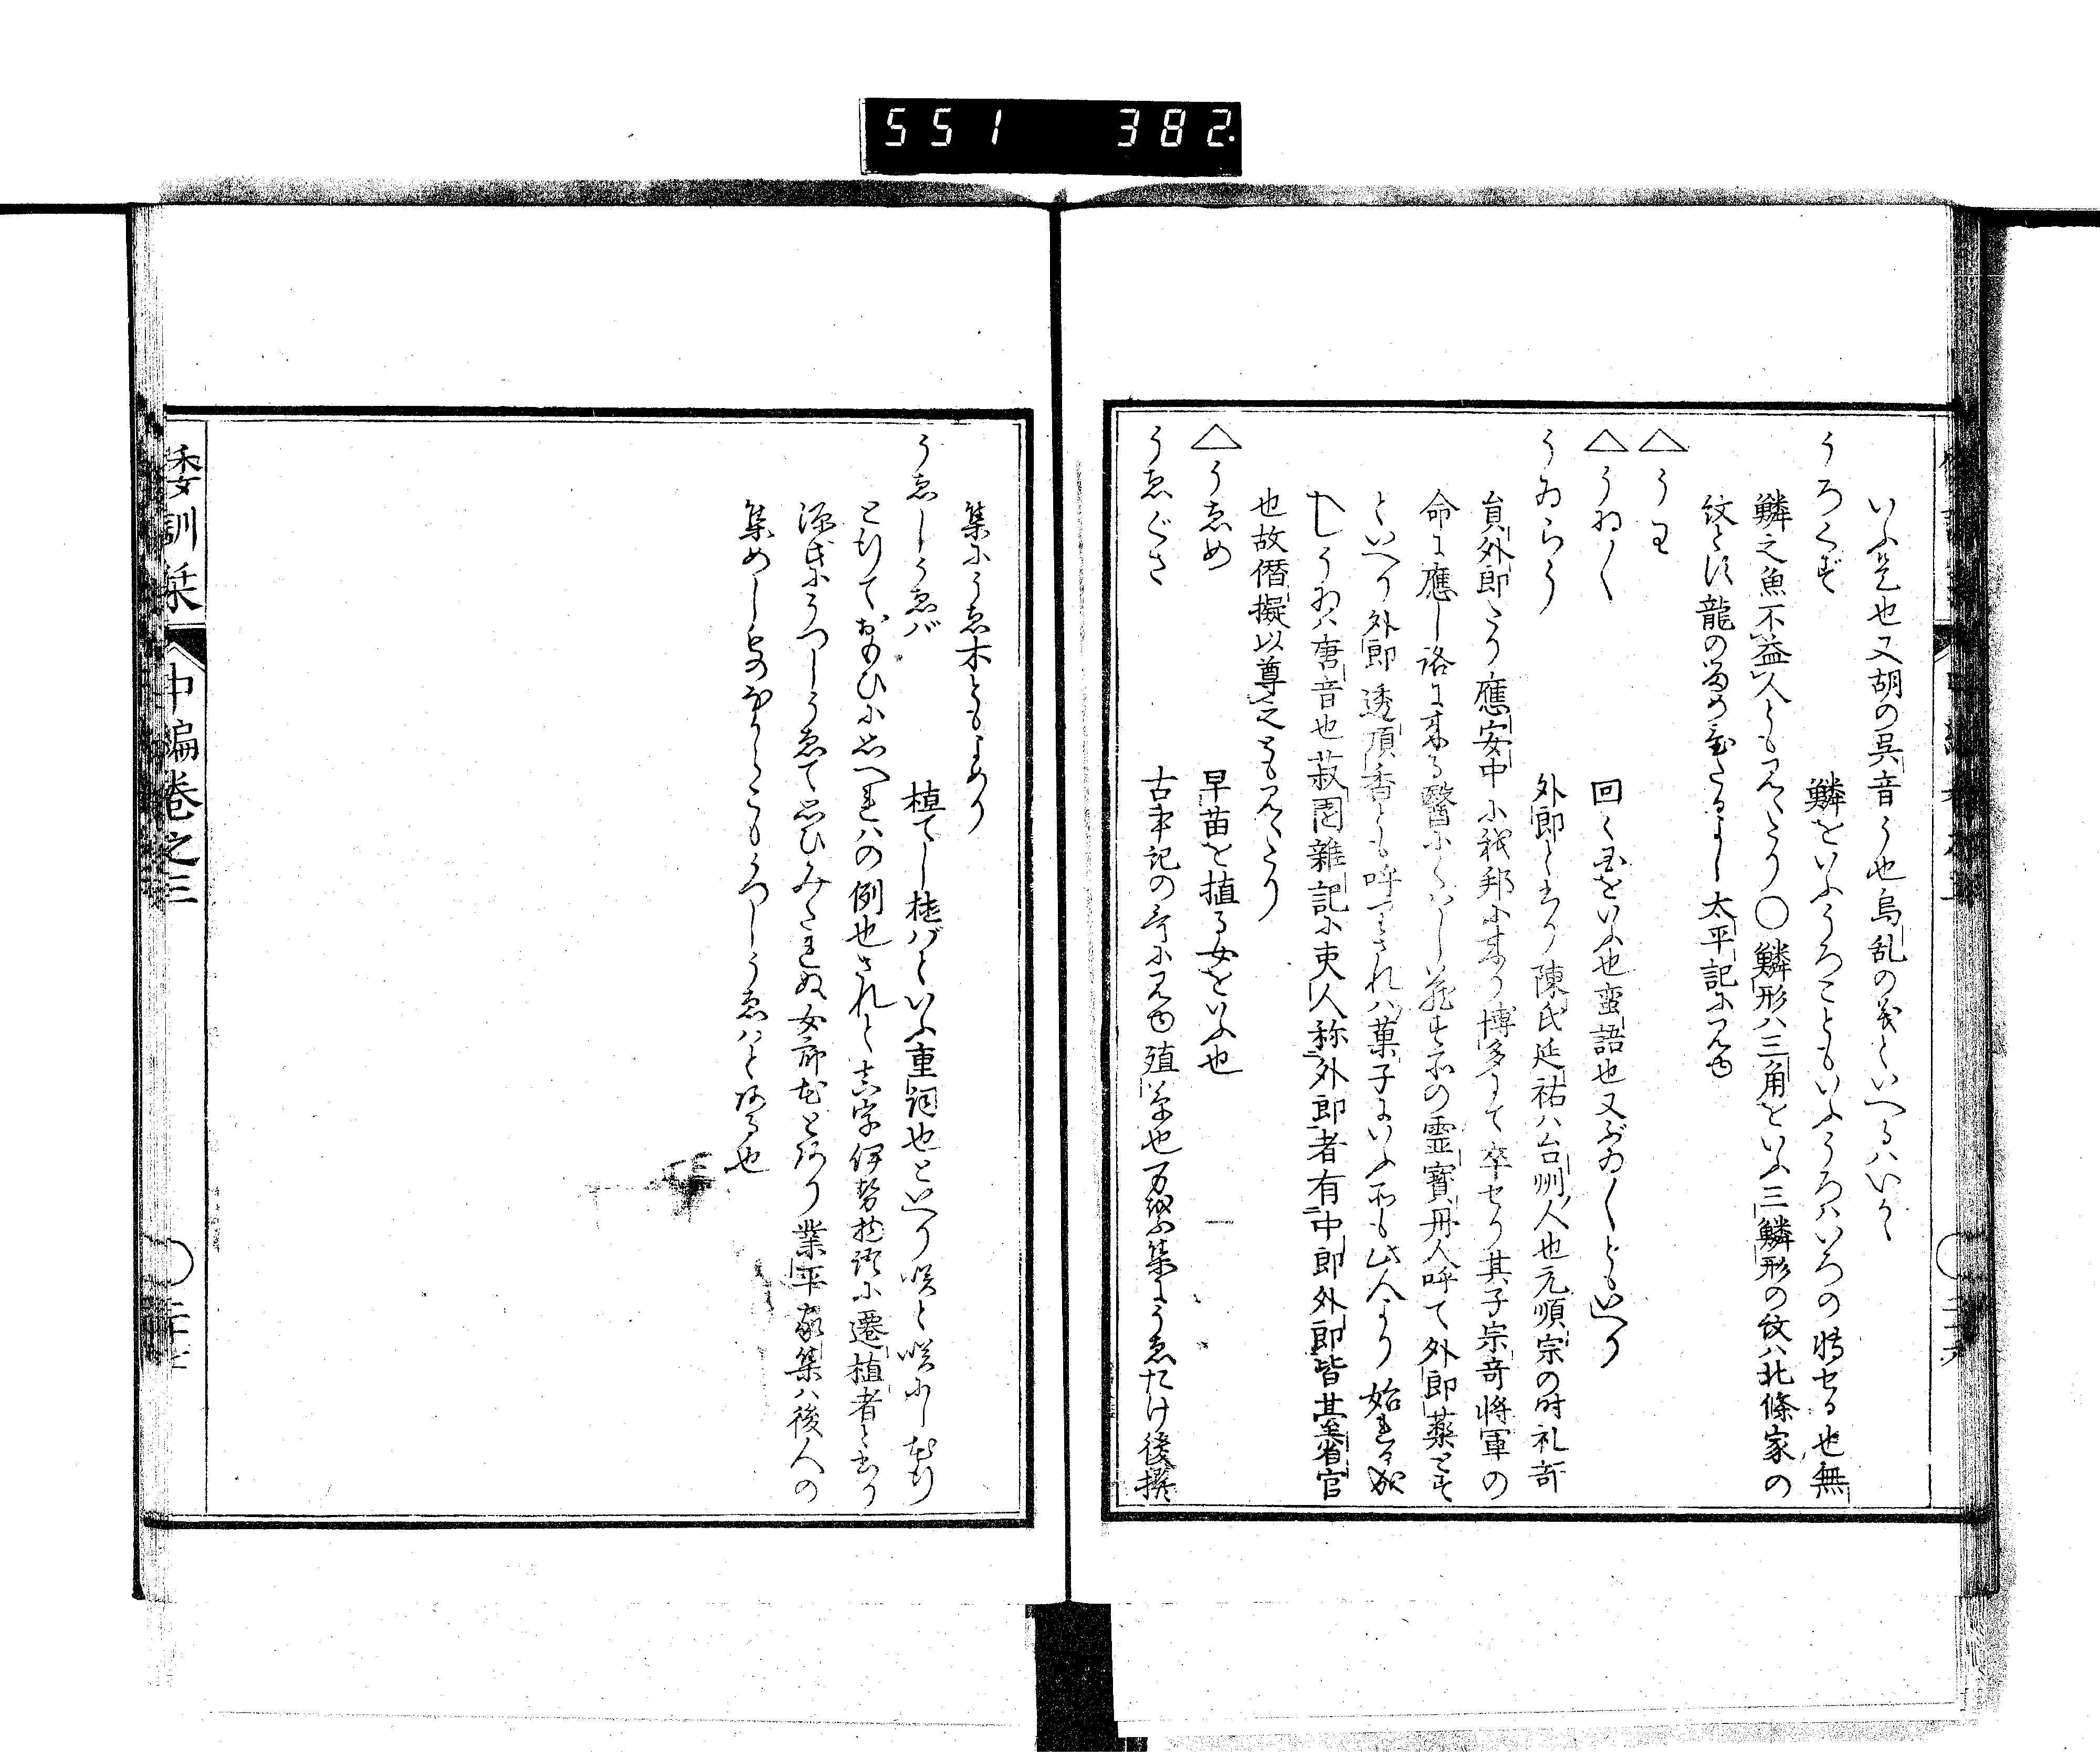 551 382
いふ是也又胡の呉音う也烏乱の義といへるハいかゝ
うろくず 鱗をいふうろこともいふうろハいろの転せる也無
鱗之魚不益人とも見えたり〇鱗形ハ三角をいふ三鱗形の紋ハ北條家の
紋とす龍の
太平記に見ゆ
△うわ
△うゐ〱 回〻国をいふ也蛮語也又ぶゐ〱ともいへり
うゐらう 外郎と書り陳氏延祐ハ台州人也元順宗の時礼部
員外郎たり應安中に我邦に来り博多にて卒せり其子宗奇将軍の
命に應し洛に来る醫にくハし
の霊寳丹人呼て外郎薬とす
といへり外郎透頂香とも呼
されハ菓子にいふ所も此人より始れる成
へしうゐハ唐音也菽園雑記に吏人称外郎者有中郎外郎皆其美省官
也故僭擬以尊之とも見えたり
△うゑめ 早苗を植る女をいふ也
うゑぐさ 古事記の哥に見ゆ殖草也万葉集にうゑたけ後撰
集にうゑ木ともよめり
うゑしうゑバ 植てし植バといふ重詞也といへり咲と咲にし
とりておもひに思へれハの例也されと真字伊勢物語に遷植者と書り
源氏にうつしうゑて思ひみたれぬ女郎花とあり業平家集ハ後人の
集めしものながらこもうつしうゑハとある也
倭訓栞 中編巻之三 〇二十七